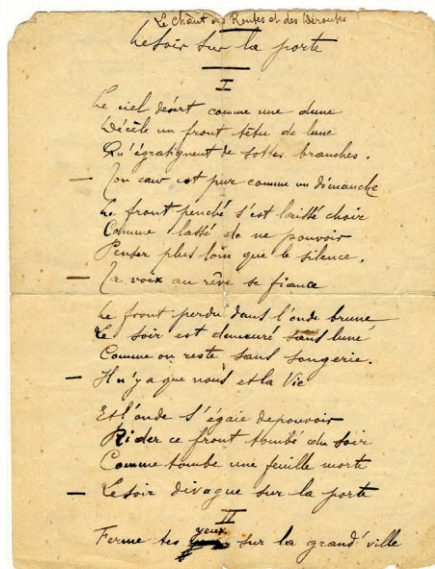 Le Chant des Routes et des Déroutes
Le Soir sur la porte
I
Le ciel désert comme une dune
Décèle un front têtu de lune
Qu'égratignent de sottes branches.
— Ton cœur est pur comme un dimanche
Le front penché s'est laissé choir
Comme lassé de ne pouvoir
Penser plus loin que le silence.
— Ta voix au rêve se fiance
Le front perdu dans l'onde brune
Le soir est demeuré sans lune
Comme on reste sans songerie.
— Il n'y a que nous et la Vie
Et l'onde s'égaie de pouvoir
Rider ce front tombé du soir
Comme tombe une feuille morte
— Le soir divague sur la porte
II
Ferme tes yeux sur la grand' ville